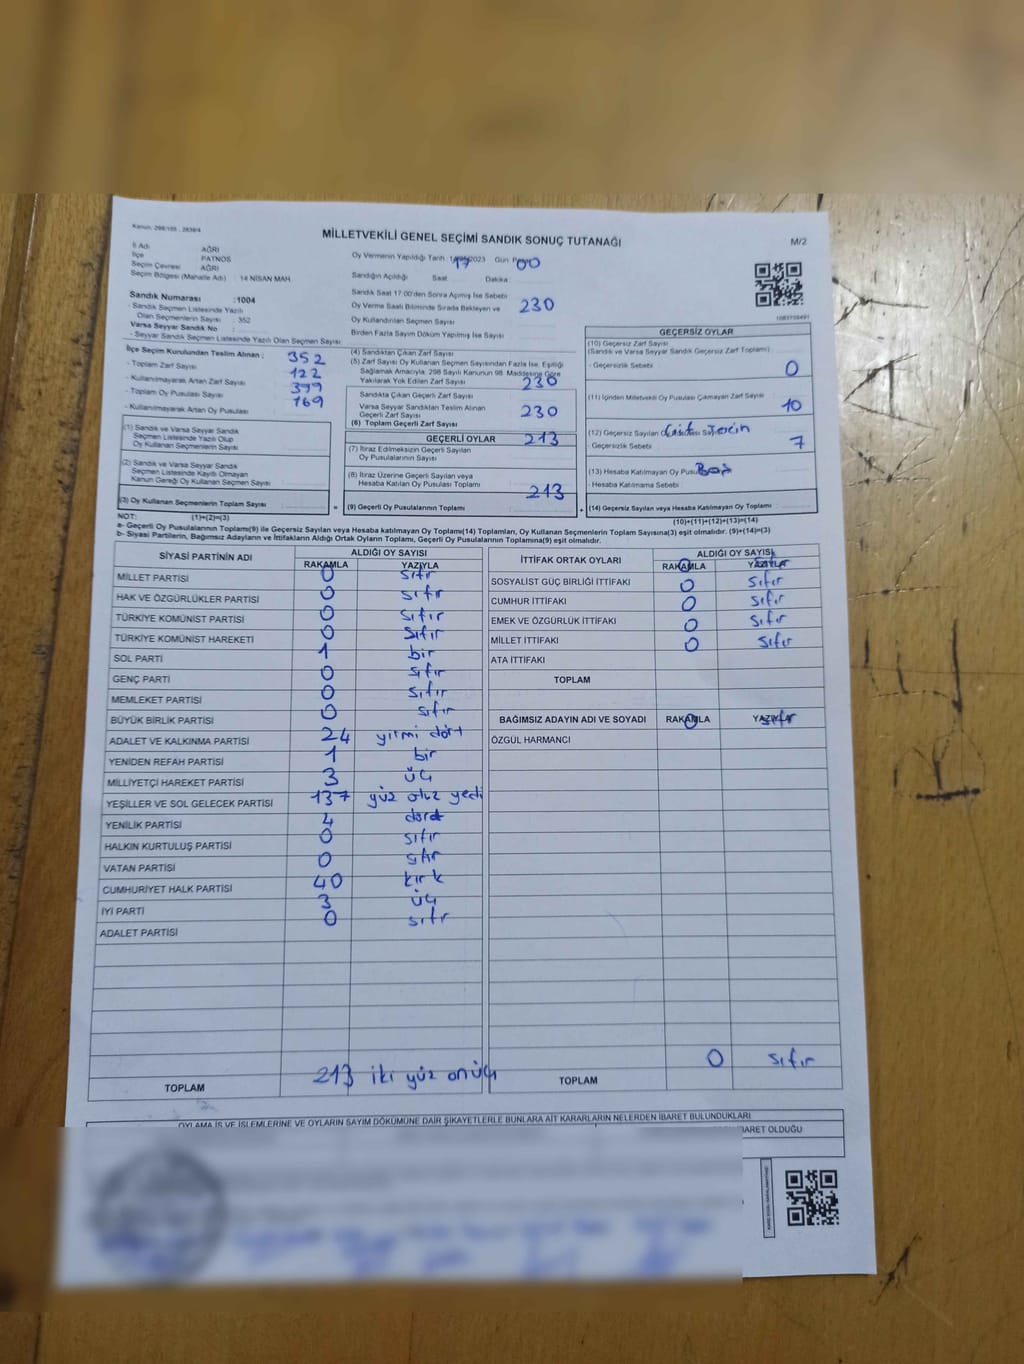 Kanun: 298/105 , 2839/4
MİLLETVEKİLİ GENEL SEÇİMİ SANDIK SONUÇ TUTANAĞI
M/2
İl Adı AĞRI
İlçe PATNOS
Seçim Çevresi AĞRI
Seçim Bölgesi (Mahalle Adı) : 14 NİSAN MAH.
Sandık Numarası :1004
- Sandık Seçmen Listesinde Yazılı
Olan Seçmenlerin Sayısı : 352
Varsa Seyyar Sandık No :
- Seyyar Sandık Seçmen Listesinde Yazılı Olan Seçmen Sayısı:
Oy Vermenin Yapıldığı Tarih : 2023 Gün
17 00
Sandığın Açıldığı Saat Dakika
Sandık Saat 17.00'den Sonra Açılmış İse Sebebi
Oy Verme Saati Bitiminde Sırada Bekleyen ve 230
Oy Kullandırılan Seçmen Sayısı
Birden Fazla Sayım Döküm Yapılmış İse Sayısı
İlçe Seçim Kurulundan Teslim Alınan : 352
- Toplam Zarf Sayısı 122
- Kullanılmayarak Artan Zarf Sayısı 399
- Toplam Oy Pusulası Sayısı 169
- Kullanılmayarak Artan Oy Pusulası
(1) Sandık ve Varsa Seyyar Sandık
Seçmen Listesinde Yazılı Olup
Oy Kullanan Seçmenlerin Sayısı
(2) Sandık ve Varsa Seyyar Sandık
Seçmen Listesinde Kayıtlı Olmayan
Kanun Gereği Oy Kullanan Seçmen Sayısı
(3) Oy Kullanan Seçmenlerin Toplam Sayısı
(4) Sandıktan Çıkan Zarf Sayısı
(5) Zarf Sayısı Oy Kullanan Seçmen Sayısından Fazla İse, Eşitliği
Sağlamak Amacıyla, 298 Sayılı Kanunun 98. Maddesine Göre
Yakılarak Yok Edilen Zarf Sayısı 230
Sandıkta Çıkan Geçerli Zarf Sayısı
Varsa Seyyar Sandıktan Teslim Alınan 230
Geçerli Zarf Sayısı
(6) Toplam Geçerli Zarf Sayısı
GEÇERLİ OYLAR 213
(7) İtiraz Edilmeksizin Geçerli Sayılan
Oy Pusulalarının Sayısı
(8) İtiraz Üzerine Geçerli Sayılan veya
Hesaba Katılan Oy Pusulası Toplamı 213
= (9) Geçerli Oy Pusulalarının Toplamı
GEÇERSİZ OYLAR
(10) Geçersiz Zarf Sayısı
(Sandık ve Varsa Seyyar Sandık Geçersiz Zarf Toplamı)
- Geçersizlik Sebebi 0
(11) İçinden Milletvekili Oy Pusulası Çıkmayan Zarf Sayısı
10
(12) Geçersiz Sayılan
- Geçersizlik Sebebi 7
(13) Hesaba Katılmayan Oy Boş
- Hesaba Katılmama Sebebi
+ (14) Geçersiz Sayılan veya Hesaba Katılmayan Oy Toplamı
NOT: (1)+(2)=(3)
(10)+(11)+(12)+(13)=(14)
a- Geçerli Oy Pusulalarının Toplamı(9) ile Geçersiz Sayılan veya Hesaba katılmayan Oy Toplamı(14) Toplamları, Oy Kullanan Seçmenlerin Toplam Sayısına(3) eşit olmalıdır. (9)+(14)=(3)
b- Siyasi Partilerin, Bağımsız Adayların ve İttifakların Aldığı Ortak Oyların Toplamı, Geçerli Oy Pusulalarının Toplamına(9) eşit olmalıdır.
SİYASİ PARTİNİN ADI ALDIĞI OY SAYISI
RAKAMLA YAZIYLA
0 sıfır
MİLLET PARTİSİ 0 sıfır
HAK VE ÖZGÜRLÜKLER PARTİSİ 0 sıfır
TÜRKİYE KOMÜNİST PARTİSİ 0 sıfır
TÜRKİYE KOMÜNİST HAREKETİ 1 bir
SOL PARTİ 0 sıfır
GENÇ PARTİ 0 sıfır
MEMLEKET PARTİSİ 0 sıfır
BÜYÜK BİRLİK PARTİSİ 24 yirmi dört
ADALET VE KALKINMA PARTİSİ 1 bir
YENİDEN REFAH PARTİSİ 3 üç
MİLLİYETÇİ HAREKET PARTİSİ 137 yüz otuz yedi
YEŞİLLER VE SOL GELECEK PARTİSİ 4 dört
YENİLİK PARTİSİ 0 sıfır
HALKIN KURTULUŞ PARTİSİ 0 sıfır
VATAN PARTİSİ 40 kırk
CUMHURİYET HALK PARTİSİ 3 üç
İYİ PARTİ 0 sıfır
ADALET PARTİSİ
213 iki yüz onüç
TOPLAM
İTTİFAK ORTAK OYLARI ALDIĞI OY SAYISI
RAKAMLA YAZIYLA
0 sıfır
SOSYALİST GÜÇ BİRLİĞİ İTTİFAKI 0 sıfır
CUMHUR İTTİFAKI 0 sıfır
EMEK VE ÖZGÜRLÜK İTTİFAKI 0 sıfır
MİLLET İTTİFAKI 0 sıfır
ATA İTTİFAKI
TOPLAM
BAĞIMSIZ ADAYIN ADI VE SOYADI RAKAMLA YAZIYLA
0 sıfır
ÖZGÜL HARMANCI
0 sıfır
TOPLAM
OYLAMA İŞ VE İŞLEMLERİNE VE OYLARIN SAYIM DÖKÜMÜNE DAİR ŞİKAYETLERLE BUNLARA AİT KARARLARIN NELERDEN İBARET BULUNDUKLARI
İBARET OLDUĞU